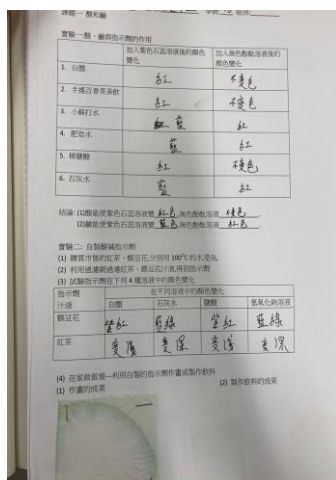 課題一 酸和鹼
實驗一:酸、鹼與指示劑的作用
加入紫色石蕊溶液後的顏色變化 加入無色酚酞溶液後的顏色變化
1. 白醋 紅 不變色
2. 手搖百香果茶飲 紅 不變色
3. 小蘇打水 藍 紅
4. 肥皂水 藍 紅
5. 稀鹽酸 紅 不變色
6. 石灰水 藍 紅
結論: (1)酸能使紫色石蕊溶液變 紅色 ,無色酚酞溶液 不變色 。
(2)鹼能使紫色石蕊溶液變 藍色 ,無色酚酞溶液 紅色 。
實驗二: 自製酸鹼指示劑
(1) 購買市售的紅茶、蝶豆花,分別用 100℃的水浸泡,
(2) 利用過濾網過濾紅茶、蝶豆花汁液,得到指示劑
(3) 試驗指示劑在下列 4 種溶液中的顏色變化
指示劑汁液 在不同溶液中的顏色變化
白醋 石灰水 鹽酸 氫氧化鈉溶液
蝶豆花 紫紅 藍綠 紫紅 藍綠
紅茶 變淺 變深 變淺 變深
(4) 在家做做看—利用自製的指示劑作畫或製作飲料
(1) 作畫的成果 (2) 製作飲料的成果